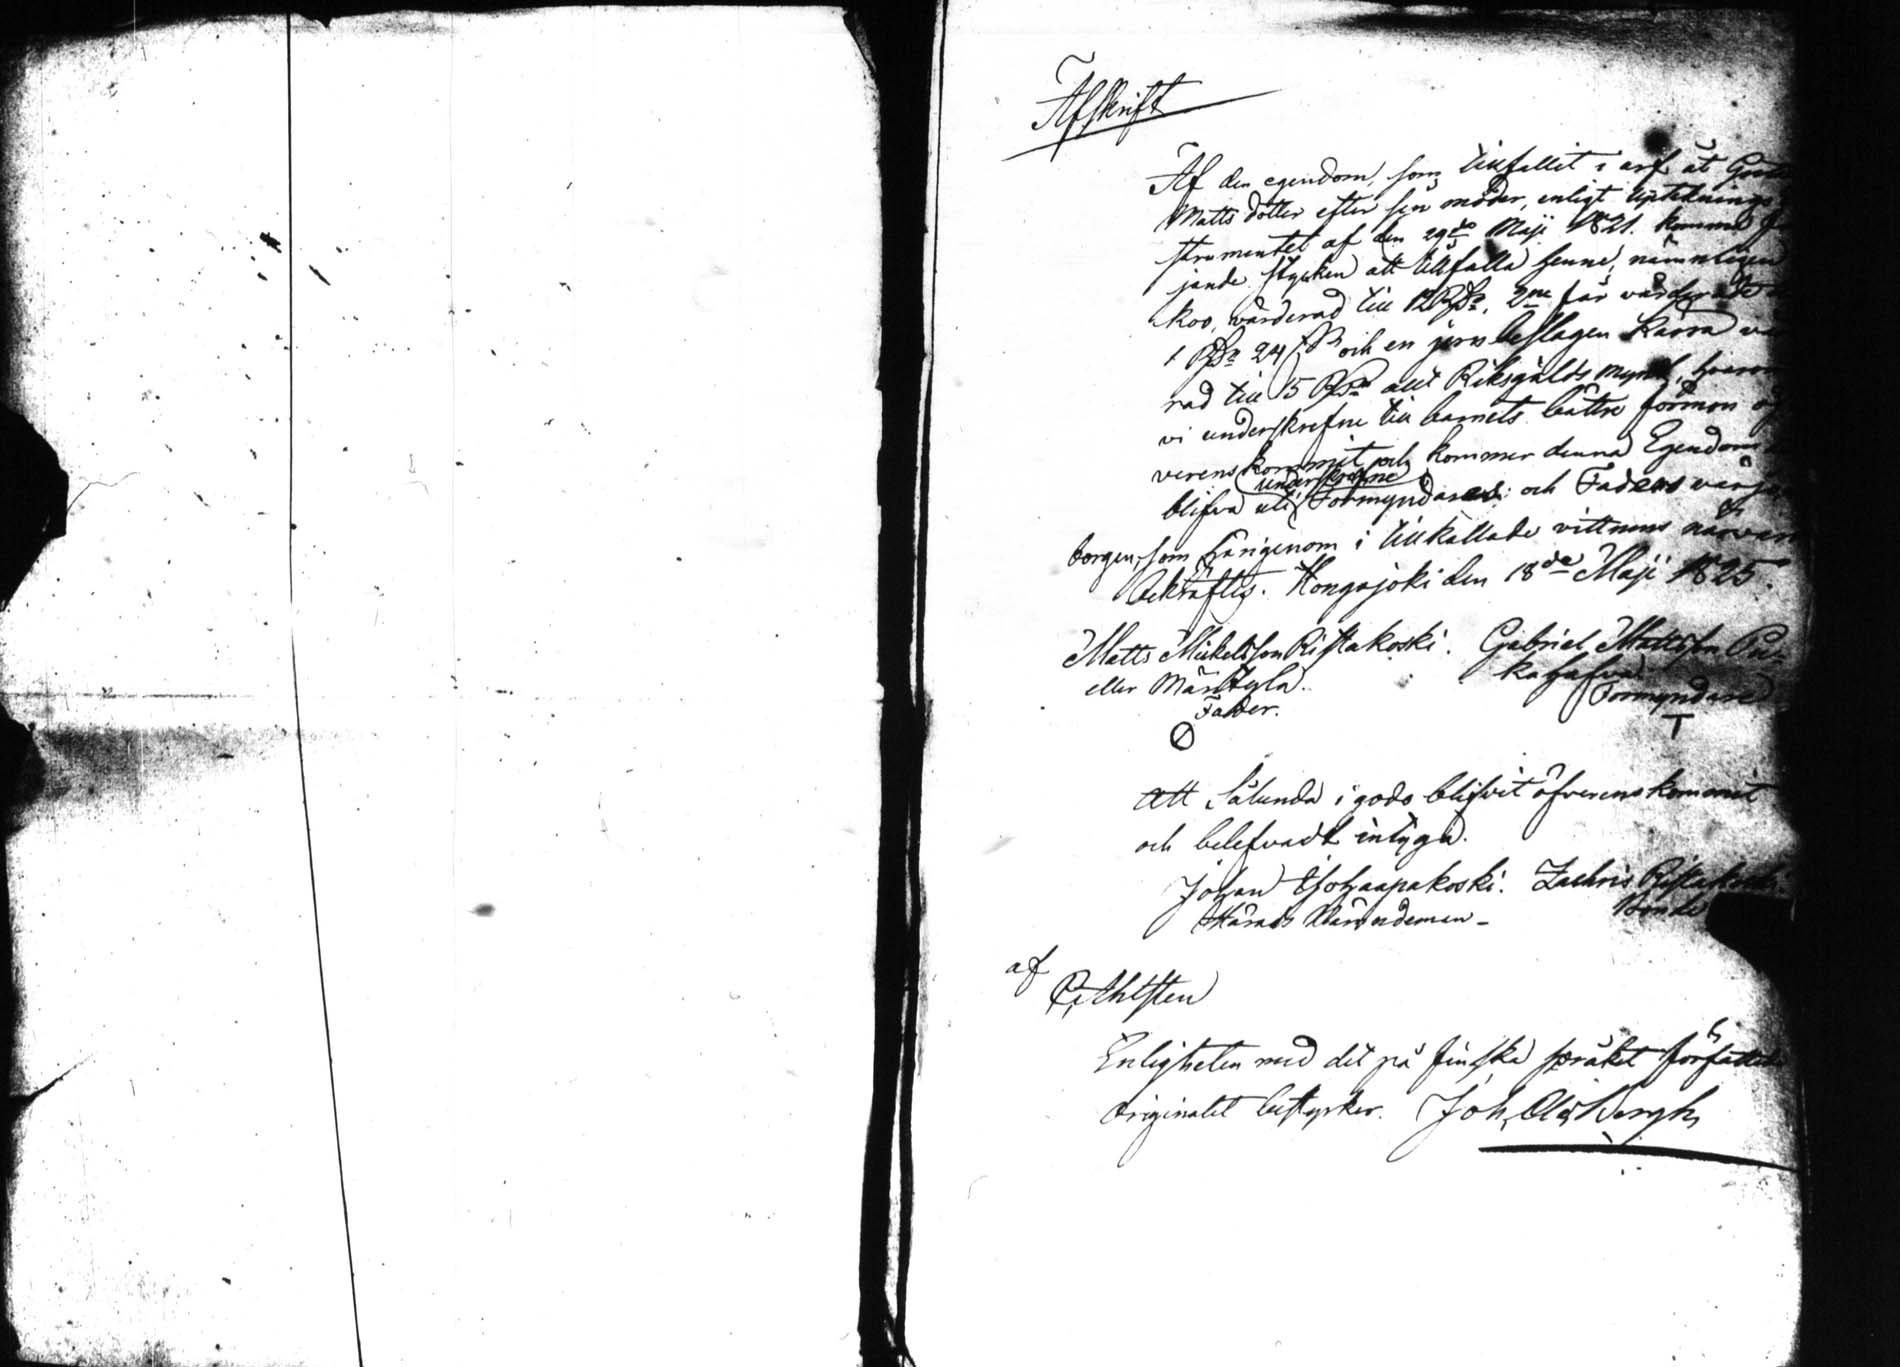 Afskrift
Af den egendom, som tillfallit i arf åt
Matts dotter efter sin moder, enligt Uptecknings
strumentet af den 29de Maji 1821. komma
jande stycken att tillfalla henne, nämnligen
koo, värderad till 12 Rdr, 2ne får värderade
1 Rdr 24 och en jern beslagen Kärra vär
rad till 15 Rdr allt Riksgälds mynt, hvarom
vi underskrefne till barnets bättre förmon öf
verenskommit och kommer denna Egendom
blifva uti underskrefne Förmyndares och Faders värjo
borgen, som härigenom i tillkallade vittnens närvaro
bekräftes. Kongajoki den 18de Maji 1825.
Matts Mickelsson Ristakoski. Gabriel Mattsson Pu-
eller Mäntyla. kagafva
Fader. Förmyndare
Att Sålunda i godo blifvit öfverenskommit
och belefvadt intyga.
Johan Isohaapakoski. Zachris Ristakoski
Härads Nämndeman Bonde
af
Ahlsten
Enligheten med det på finska språket författade
originalet bestyrker. Joh,